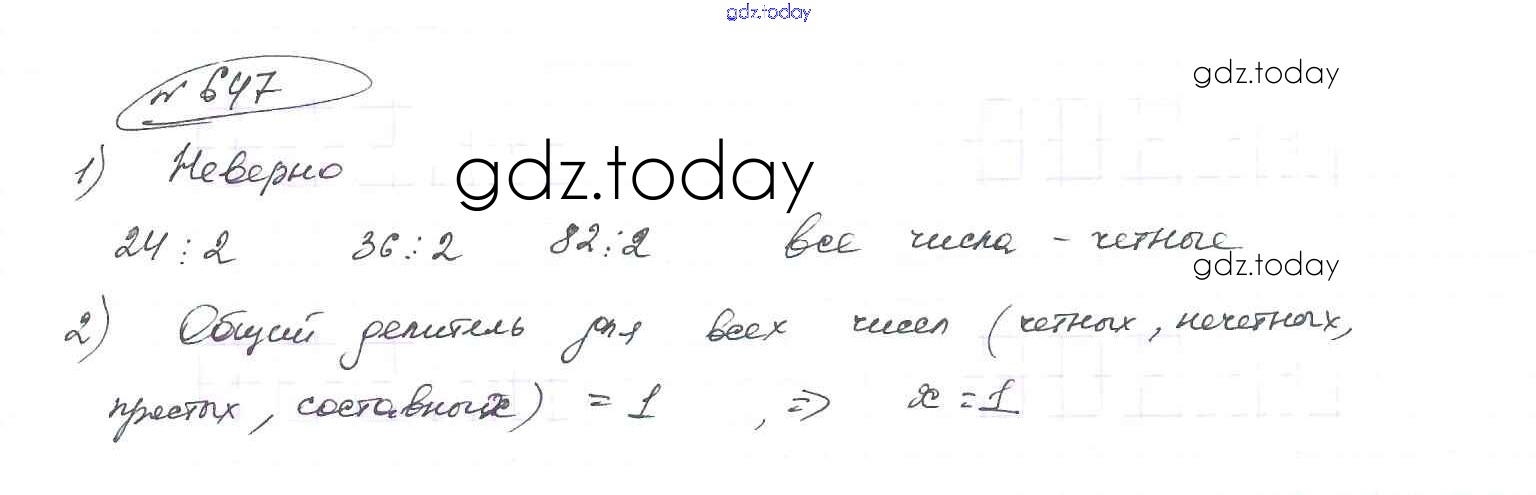 gdz.today
№ 647
gdz.today
1) Неверно
gdz.today
24 ⋮ 2 36 ⋮ 2 82 ⋮ 2 все числа - четные
gdz.today
2) Общий делитель для всех чисел (четных, нечетных,
простых, составных) = 1 , => x = 1